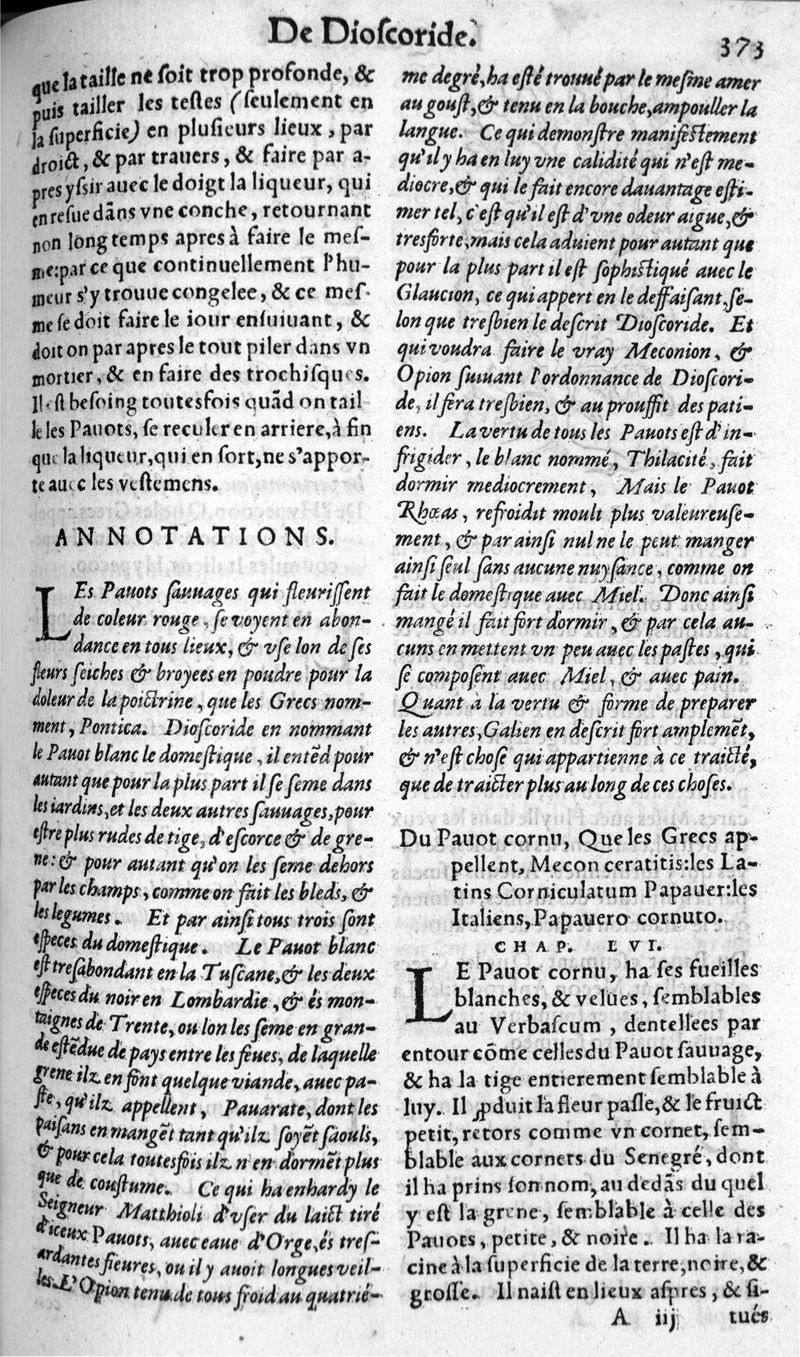 De Dioſcoride.
373
que la taille ne ſoit trop profonde, &
puis tailler les teſtes (ſeulement en
la ſuperficie) en pluſieurs lieux, par
droict, & par trauers, & faire par a-
pres yſsir auec le doigt la liqueur, qui
en reſue dãns vne conche, retournant
non long temps apres à faire le meſ-
me: par ce que continuellement l'hu-
meur s'y trouue congelee, & ce meſ-
me ſe doit faire le iour enſuiuant, &
doit on par apres le tout piler dans vn
mortier, & en faire des trochiſques.
Il eſt beſoing toutesfois quãd on tail
le les Pauots, ſe reculer en arriere, à fin
que la liqueur, qui en ſort, ne s'appor-
te auec les veſtemens.
ANNOTATIONS.
LEs Pauots ſauuages qui fleuriſſent
de coleur rouge, ſe voyent en abon-
dance en tous lieux, & vſe lon de ſes
fleurs ſeiches & broyees en poudre pour la
doleur de la poictrine, que les Grecs nom-
ment, Pontica. Dioſcoride en nommant
le Pauot blanc le domeſtique, il entẽd pour
autant que pour la plus part il ſe ſeme dans
les iardins, et les deux autres ſauuages, pour
eſtre plus rudes de tige, d'eſcorce & de gre-
ne: & pour autant qu'on les ſeme dehors
par les champs, comme on fait les bleds, &
les legumes. Et par ainſi tous trois ſont
eſpeces du domeſtique. Le Pauot blanc
eſt treſabondant en la Tuſcane, & les deux
eſpeces du noir en Lombardie, & és mon-
taignes de Trente, ou lon les ſeme en gran-
de eſtẽdue de pays entre les feues, de laquelle
grene ilz en font quelque viande, auec pa-
ſte, qu'ilz appellent, Pauarate, dont les
paiſans en mangẽt tant qu'ilz ſoyẽt ſaouls,
& pour cela toutesfois ilz n'en dormẽt plus
que de couſtume. Ce qui ha enhardy le
Seigneur Matthioli d'vſer du laict tiré
d'iceux Pauots, auec eaue d'Orge, és treſ-
ardantes fieures, ou il y auoit longues veil-
les. L'Opion tenu de tous froid au quatrié-
me degré, ha eſté trouué par le meſme amer
au gouſt, & tenu en la bouche, ampouller la
langue. Ce qui demonſtre manifeſtement
qu'il y ha en luy vne calidité qui n'eſt me-
diocre, & qui le fait encore dauantage eſti-
mer tel, c'eſt qu'il eſt d'vne odeur aigue, &
tresforte, mais cela aduient pour autant que
pour la plus part il eſt ſophiſtiqué auec le
Glaucion, ce qui appert en le deffaiſant, ſe-
lon que treſbien le deſcrit Dioſcoride. Et
qui voudra faire le vray Meconion, &
Opion ſuiuant l'ordonnance de Dioſcori-
de, il fera treſbien, & au prouffit des pati-
ens. La vertu de tous les Pauots eſt d'in-
frigider, le blanc nommé, Thilacité, fait
dormir mediocrement, Mais le Pauot
Rhœas, refroidit moult plus valeureuſe-
ment, & par ainſi nul ne le peut manger
ainſi ſeul ſans aucune nuyſance, comme on
fait le domeſtique auec Miel. Donc ainſi
mangé il fait fort dormir, & par cela au-
cuns en mettent vn peu auec les paſtes, qui
ſe compoſent auec Miel, & auec pain.
Quant à la vertu & forme de preparer
les autres, Galien en deſcrit fort amplemẽt,
& n'eſt choſe qui appartienne à ce traicté,
que de traicter plus au long de ces choſes.
Du Pauot cornu, Que les Grecs ap-
pellent, Mecon ceratitis: les La-
tins Corniculatum Papauer: les
Italiens, Papauero cornuto.
CHAP. LVI.
LE Pauot cornu, ha ſes fueilles
blanches, & velues, ſemblables
au Verbaſcum, dentellees par
entour cõme celles du Pauot ſauuage,
& ha la tige entierement ſemblable à
luy. Il ꝓduit la fleur paſle, & le fruict
petit, retors comme vn cornet, ſem-
blable aux cornets du Senegré, dont
il ha prins ſon nom, au dedãs du quel
y eſt la grene, ſemblable à celle des
Pauots, petite, & noire. Il ha la ra-
cine à la ſuperficie de la terre, noire, &
groſſe. Il naiſt en lieux aſpres, & ſi-
A iij
tués